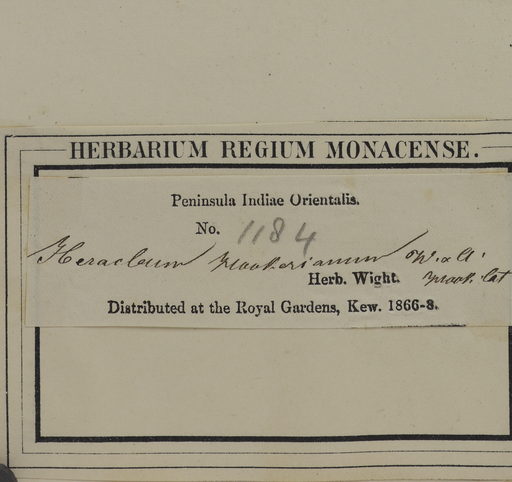 HERBARIUM REGIUM MONACENSE.
Peninsula Indiae Orientalis.
No. 1184
Heracleum Hookerianum W. &
Herb. Wight.
Distributed at the Royal Gardens, Kew. 1866-8.